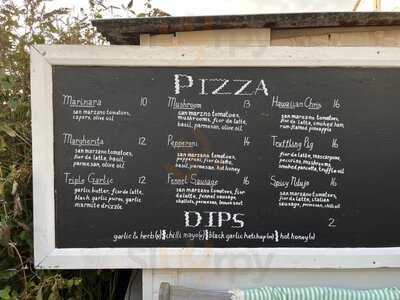 PIZZA
Marinara 10
san marzano tomatoes,
capers, olive oil
Mushroom 13
san marzano tomatoes,
mushrooms, fior de latte,
basil, parmesan, olive oil
Hawaiian Chris 16
san marzano tomatoes,
fior de latte, smoked ham,
rum flamed pineapple
Margherita 12
san marzano tomatoes,
fior de latte, basil,
parmesan, olive oil
Pepperoni 14
san marzano tomatoes,
pepperoni, fior de latte,
basil, parmesan, hot honey
Truffling Pig 16
fior de latte, mascarpone,
pecorino, mushrooms,
smoked pancetta, truffle oil
Triple Garlic 12
garlic butter, fior de latte,
black garlic puree, garlic
marmite drizzle
Fennel Sausage 16
san marzano tomatoes,
fior de latte, fennel sausage,
shallots, parmesan, lemon zest
Spicy Nduja 16
san marzano tomatoes,
fior de latte, italian
sausage, parmesan, chilli oil
DIPS 2
garlic & herb (v) chilli mayo (v) black garlic ketchup (v) hot honey (v)